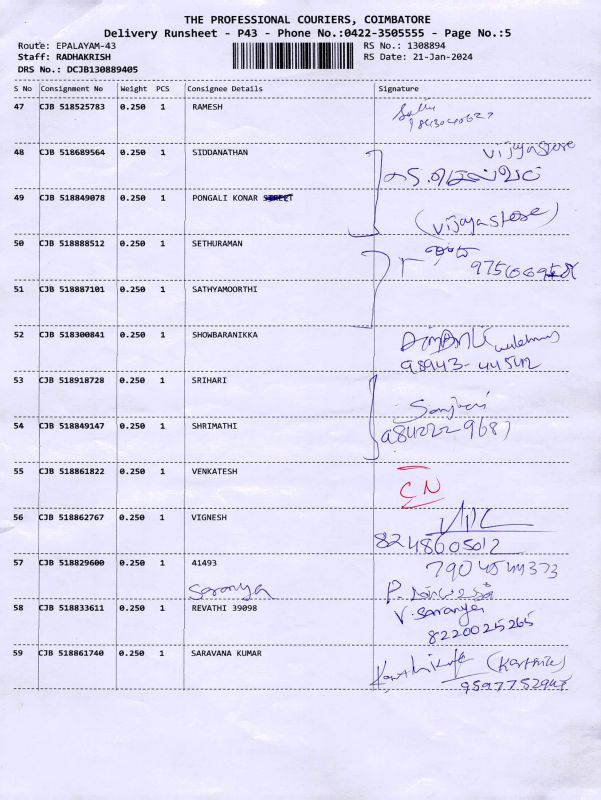 THE PROFESSIONAL COURIERS, COIMBATORE
Delivery Runsheet - P43 - Phone No.:0422-3505555 - Page No.:5
Route: EPALAYAM-43 RS No.: 1308894
Staff: RADHAKRISH RS Date: 21-Jan-2024
DRS No.: DCJB130889405
S No Consignment No Weight PCS Consignee Details Signature
47 CJB 518525783 0.250 1 RAMESH
48 CJB 518689564 0.250 1 SIDDANATHAN Vijaya Store
49 CJB 518849078 0.250 1 PONGALI KONAR STREET
(Vijaya Store)
50 CJB 518888512 0.250 1 SETHURAMAN
51 CJB 518887101 0.250 1 SATHYAMOORTHI
52 CJB 518300841 0.250 1 SHOWBARANIKKA
98943-44542
53 CJB 518918728 0.250 1 SRIHARI
54 CJB 518849147 0.250 1 SHRIMATHI
9842229687
55 CJB 518861822 0.250 1 VENKATESH
CN
56 CJB 518862767 0.250 1 VIGNESH
8248605012
57 CJB 518829600 0.250 1 41493 7904544373
Saranya
58 CJB 518833611 0.250 1 REVATHI 39098 V. Saranya
8220025265
59 CJB 518861740 0.250 1 SARAVANA KUMAR
(Karthik)